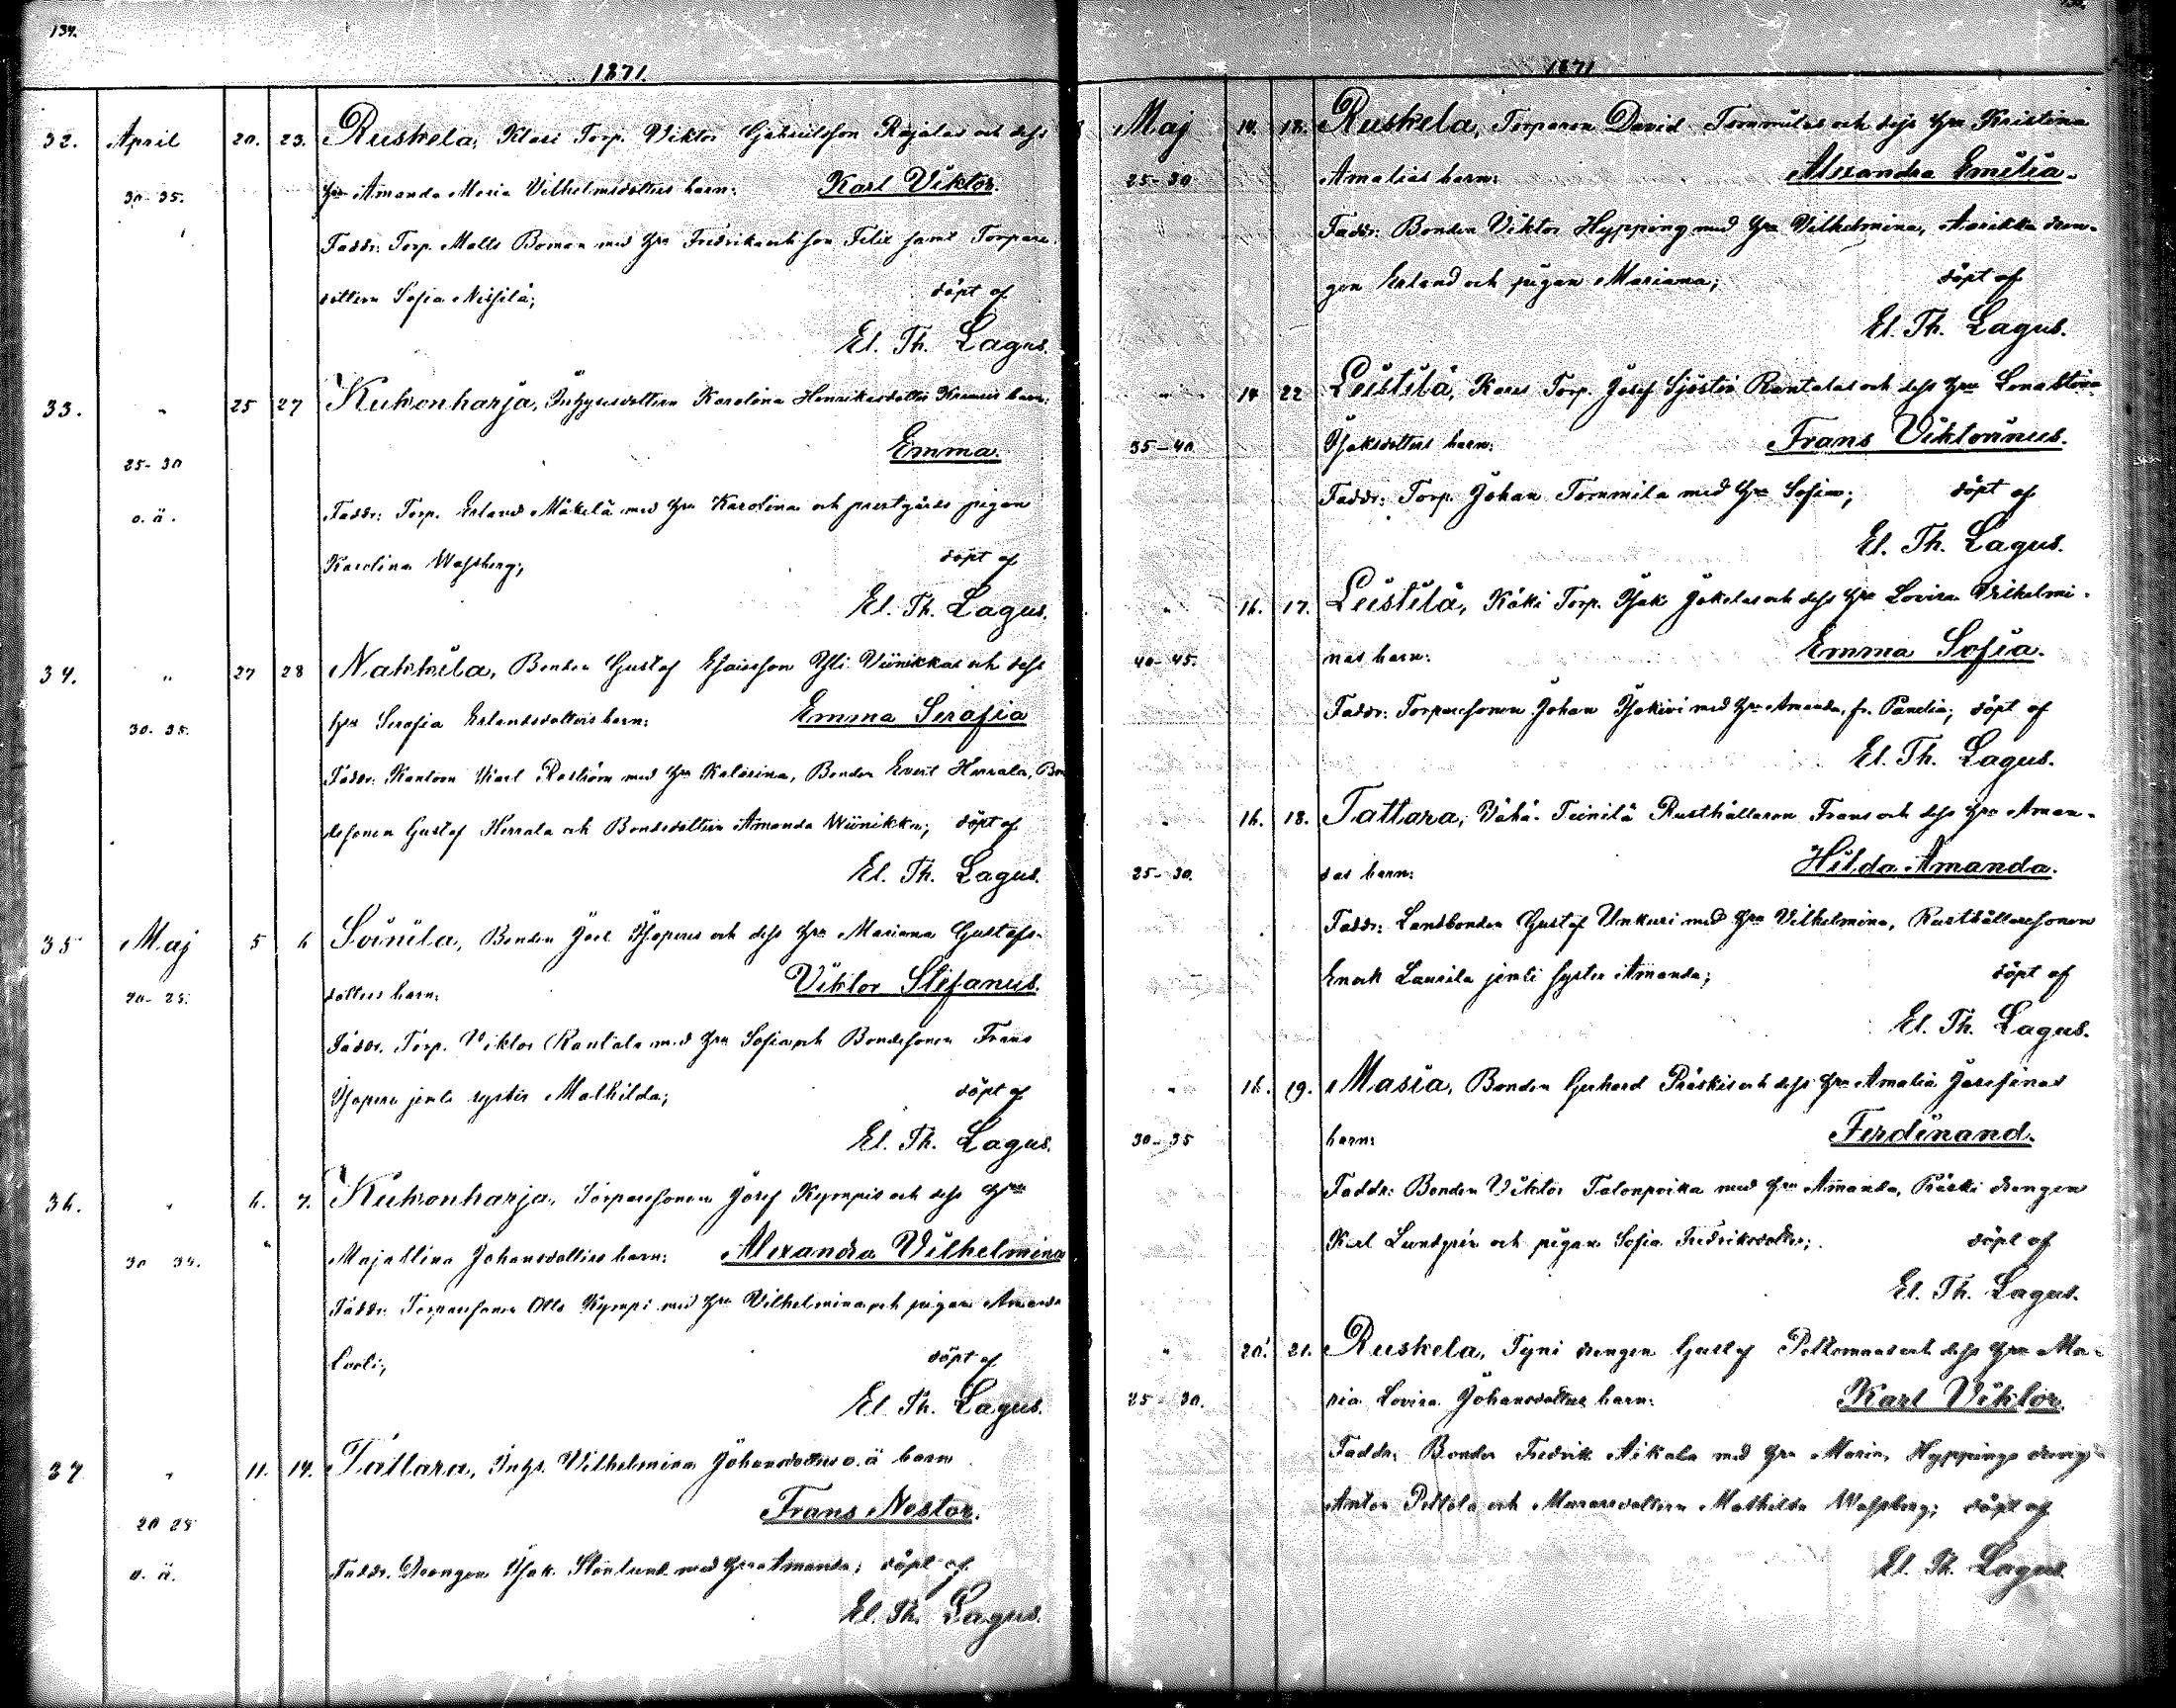 134.
1871.
32. April 20. 23. Ruskela, Klasi Torp. Viktor Gabrielsson Rajalas och dess
30-35. hru Amanda Maria Vilhelmsdotters barn: Karl Viktor.
Faddr: Torp. Matts Boman med hru Fredrika och son Felix samt Torpare-
dottern Sofia Nissilä; döpt af
El. Th. Lagus.
33. " 25 27 Kukonharja, Inhysesdottern Karolina Henriksdotter barn:
25-30 Emma.
o. ä. Faddr: Torp. Erland Mäkelä med hru Karolina och prestgårds pigan
Karolina Wassberg; döpt af
El. Th. Lagus.
34. " 27 28 Nakkila, Bonden Gustaf Esaiasson Yli-Viinikkas och dess
30-35. hru Serafia Erlandsdotters barn: Emma Serafia
Faddr: Kantorn Karl Roström med hru Katarina, Bonden Evert Herrala, Bon
desonen Gustaf Herrala och Bondedottern Amanda Wiinikka; döpt af
El. Th. Lagus.
35 Maj 5 6 Soinila, Bonden Joel Isoperes och dess hru Mariana Gustafs-
20-25. dotters barn: Viktor Stefanus.
Faddr. Torp. Viktor Rantala med hru Sofia och Bondesonen Frans
Isopere jemte syster Mathilda; döpt af
El. Th. Lagus.
36. " 6. 7. Kukonharja, Torparesonen Josef Kympis och dess hru
30 35. Majastina Johansdotters barn: Alexandra Vilhelmina
Faddr. Torparesonen Otto Kympi med hru Vilhelmina och pigan Amanda
döpt af
El. Th. Lagus.
37 " 11. 14. Tattara, Inhs. Vilhelmina Johansdotters o. ä barn
20 25 Frans Nestor.
o. ä. Faddr. Drengen Isak Stenlund med hru Amanda; döpt af
El. Th. Lagus.
1871
Maj 14. 18. Ruskela, Torparen David Tommilas och dess hru Kristina
25-30 Amalias barn: Alexandra Emilia.
Faddr: Bonden Viktor Hypping med hru Vilhelmina, Anrikka dren-
gen Erland och pigan Mariana; döpt af
El. Th. Lagus.
" 14 22 Leistilä, Torp. Josef Sjöstén Rantalas och dess hru Lenastina
35-40. Isaksdotters barn: Frans Viktorinus.
Faddr: Torp. Johan Tommila med hru Sofia; döpt af
El. Th. Lagus.
" 16. 17. Leistilä, Käki Torp. Isak Jokelas och dess hru Lovisa Vilhelmi-
40-45. nas barn: Emma Sofia.
Faddr: Torparesonen Johan Isokivi med hru Amanda, fr. Panelia; döpt af
El. Th. Lagus.
" 16. 18. Tattara, Vähä-Teinilä Rusthållaren Frans och dess hru Aman-
25-30. das barn: Hilda Amanda.
Faddr: Landbonden Gustaf Unkuri med hru Vilhelmina, Rusthållaresonen
Enok Laurila jemte syster Amanda; döpt af
El. Th. Lagus.
" 16. 19. Masia, Bonden Gerhard Präskis och dess hru Amalia Josefinas
30-35 barn: Ferdinand.
Faddr: Bonden Viktor Talonpoika med hru Amanda, Präski drengen
Karl Lundgrén och pigan Sofia Fredriksdotter; döpt af
El. Th. Lagus.
" 20. 21. Ruskela, Tyni drengen Gustaf Peltomaas och dess hru Ma-
25-30. ria Lovisa Johansdotters barn: Karl Viktor.
Faddr: Bonden Fredrik Aikala med hru Maria, Hyppings dreng
Anton Peltola och Murarsdottern Mathilda Wassberg; döpt af
El. Th. Lagus.